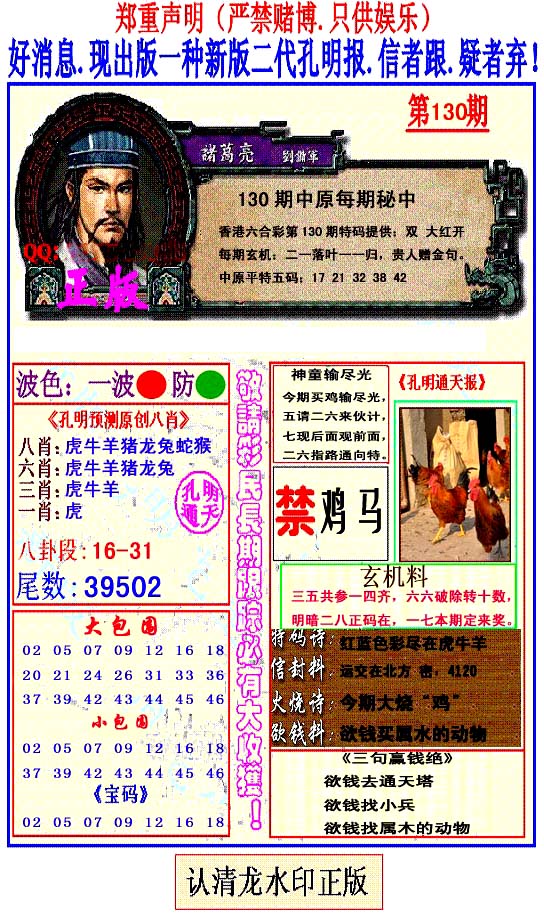 郑重声明（严禁赌博.只供娱乐）
好消息.现出版一种新版二代孔明报.信者跟.疑者弃!
第130期
諸葛亮
130 期中原每期秘中
香港六合彩第 130 期特码提供: 双 大红开
每期玄机: 二一落叶一一归，贵人赠金句。
中原平特五码: 17 21 32 38 42
QQ:
正版
波色: 一波 防
《孔明预测原创八肖》
八肖:虎牛羊猪龙兔蛇猴
六肖:虎牛羊猪龙兔
三肖:虎牛羊
一肖:虎
孔明
通天
八卦段:16-31
尾数:39502
大包围
02 05 07 09 12 16 18
20 21 24 26 31 33 36
37 39 42 43 44 45 46
小包围
02 05 07 09 12 16 18
37 39 42 43 44 45 46
《宝码》
02 05 07 09 12 16 18
敬請彩民長期跟踪必有大收獲！
神童输尽光
今期买鸡输尽光，
五请二六来伙计，
七现后面观前面，
二六指路通向特。
《孔明通天报》
禁鸡马
玄机料
三五共参一四齐，六六破除转十数，
明暗二八正码在，一七本期定来奖。
特码诗: 红蓝色彩尽在虎牛羊
信封料: 运交在北方 密，4120
火烧诗: 今期大烧“鸡”
欲钱料: 欲钱买属水的动物
《三句赢钱绝》
欲钱去通天塔
欲钱找小兵
欲钱找属木的动物
认清龙水印正版